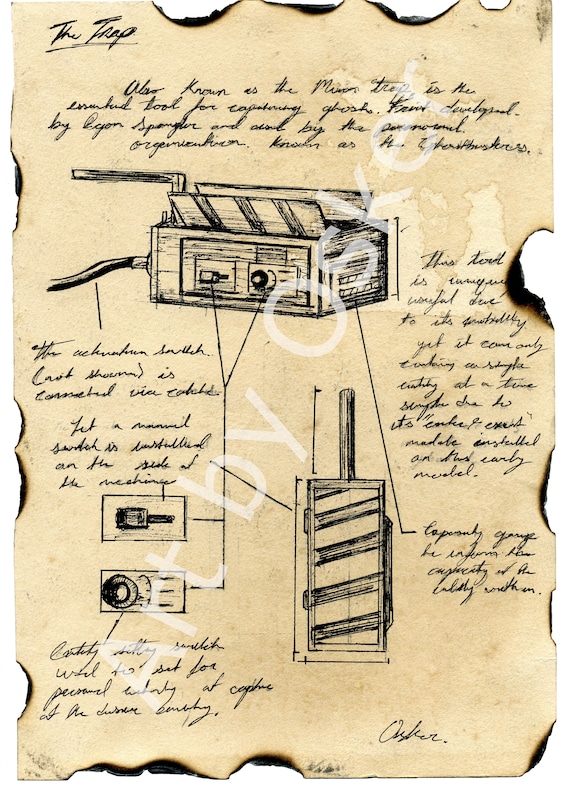 The Trap
Also Known as the Muon trap is the
essential tool for capturing ghosts. First developed
by Egon Spengler and used by the paranormal
organization. Known as the Ghostbusters.
This tool
is unique
useful due
to its portability
yet it can only
contain a single
entity at a time
simple due to
its
module installed
on this early
model.
The activation switch
(not shown) is
connected via cable
Yet a manual
switch is installed
on the side of
the machine
Capacity gauge
to inform the
capacity of the
entity within.
Entity switch
used to set for
personal entity at capture
at the
Osker.
Art by Osker